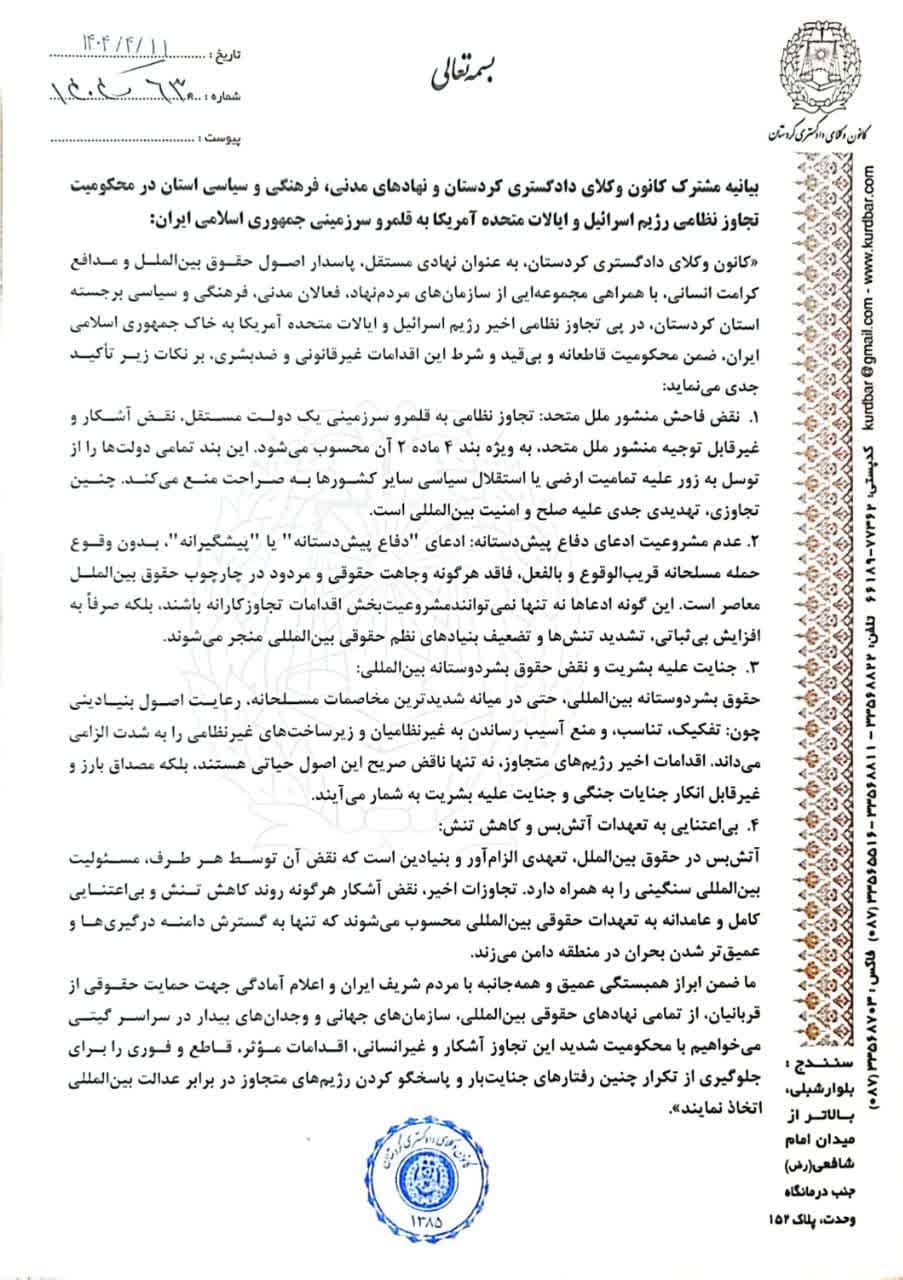 بسمه تعالی
تاریخ : ۱۴۰۴/۴/۱۱
شماره :
پیوست :
کانون وکلای دادگستری کردستان
بیانیه مشترک کانون وکلای دادگستری کردستان و نهادهای مدنی، فرهنگی و سیاسی استان در محکومیت
تجاوز نظامی رژیم اسرائیل و ایالات متحده آمریکا به قلمرو سرزمینی جمهوری اسلامی ایران:
«کانون وکلای دادگستری کردستان، به عنوان نهادی مستقل، پاسدار اصول حقوق بین‌الملل و مدافع
کرامت انسانی، با همراهی مجموعه‌ایی از سازمان‌های مردم‌نهاد، فعالان مدنی، فرهنگی و سیاسی برجسته
استان کردستان، در پی تجاوز نظامی اخیر رژیم اسرائیل و ایالات متحده آمریکا به خاک جمهوری اسلامی
ایران، ضمن محکومیت قاطعانه و بی‌قید و شرط این اقدامات غیرقانونی و ضدبشری، بر نکات زیر تأکید
جدی می‌نماید:
۱. نقض فاحش منشور ملل متحد: تجاوز نظامی به قلمرو سرزمینی یک دولت مستقل، نقض آشکار و
غیرقابل توجیه منشور ملل متحد، به ویژه بند ۴ ماده ۲ آن محسوب می‌شود. این بند تمامی دولت‌ها را از
توسل به زور علیه تمامیت ارضی یا استقلال سیاسی سایر کشورها به صراحت منع می‌کند. چنین
تجاوزی، تهدیدی جدی علیه صلح و امنیت بین‌المللی است.
۲. عدم مشروعیت ادعای دفاع پیش‌دستانه: ادعای "دفاع پیش‌دستانه" یا "پیشگیرانه"، بدون وقوع
حمله مسلحانه قریب‌الوقوع و بالفعل، فاقد هرگونه وجاهت حقوقی و مردود در چارچوب حقوق بین‌الملل
معاصر است. این گونه ادعاها نه تنها نمی‌توانندمشروعیت‌بخش اقدامات تجاوزکارانه باشند، بلکه صرفاً به
افزایش بی‌ثباتی، تشدید تنش‌ها و تضعیف بنیادهای نظم حقوقی بین‌المللی منجر می‌شوند.
۳. جنایت علیه بشریت و نقض حقوق بشردوستانه بین‌المللی:
حقوق بشردوستانه بین‌المللی، حتی در میانه شدیدترین مخاصمات مسلحانه، رعایت اصول بنیادینی
چون: تفکیک، تناسب، و منع آسیب رساندن به غیرنظامیان و زیرساخت‌های غیرنظامی را به شدت الزامی
می‌داند. اقدامات اخیر رژیم‌های متجاوز، نه تنها ناقض صریح این اصول حیاتی هستند، بلکه مصداق بارز و
غیرقابل انکار جنایات جنگی و جنایت علیه بشریت به شمار می‌آیند.
۴. بی‌اعتنایی به تعهدات آتش‌بس و کاهش تنش:
آتش‌بس در حقوق بین‌الملل، تعهدی الزام‌آور و بنیادین است که نقض آن توسط هر طرف، مسئولیت
بین‌المللی سنگینی را به همراه دارد. تجاوزات اخیر، نقض آشکار هرگونه روند کاهش تنش و بی‌اعتنایی
کامل و عامدانه به تعهدات حقوقی بین‌المللی محسوب می‌شوند که تنها به گسترش دامنه درگیری‌ها و
عمیق‌تر شدن بحران در منطقه دامن می‌زند.
ما ضمن ابراز همبستگی عمیق و همه‌جانبه با مردم شریف ایران و اعلام آمادگی جهت حمایت حقوقی از
قربانیان، از تمامی نهادهای حقوقی بین‌المللی، سازمان‌های جهانی و وجدان‌های بیدار در سراسر گیتی
می‌خواهیم با محکومیت شدید این تجاوز آشکار و غیرانسانی، اقدامات مؤثر، قاطع و فوری را برای
جلوگیری از تکرار چنین رفتارهای جنایت‌بار و پاسخگو کردن رژیم‌های متجاوز در برابر عدالت بین‌المللی
اتخاذ نمایند».
کانون وکلای دادگستری کردستان
۱۳۸۵
سنندج :
بلوارشبلی،
بالاتر از
میدان امام
شافعی(رض)
جنب درمانگاه
وحدت، پلاک ۱۵۲
kurdbar@gmail.com - www.kurdbar.com
کدپستی: ۷۷۳۶۲-۶۶۱۸۹ تلفن: ۳۳۵۶۸۸۲۲ - ۳۳۵۶۸۸۱۱ - ۳۳۵۶۵۵۱۶ (۰۸۷) فاکس : ۳۳۵۶۸۷۰۳ (۰۸۷)